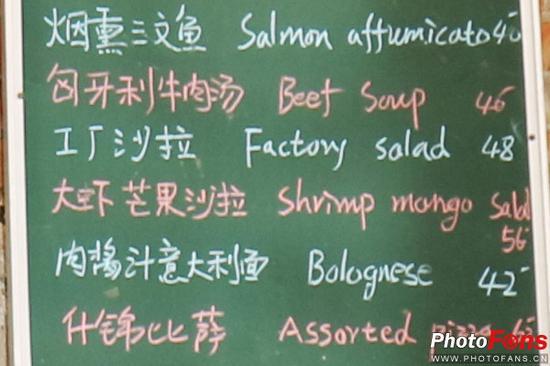 烟熏三文鱼 Salmon affumicato
匈牙利牛肉汤 Beef Soup 46
工厂沙拉 Factory salad 48
大虾芒果沙拉 Shrimp mango Salad
56
肉酱汁意大利面 Bolognese 42
什锦比萨 Assorted
PhotoFans
WWW.PHOTOFANS.CN